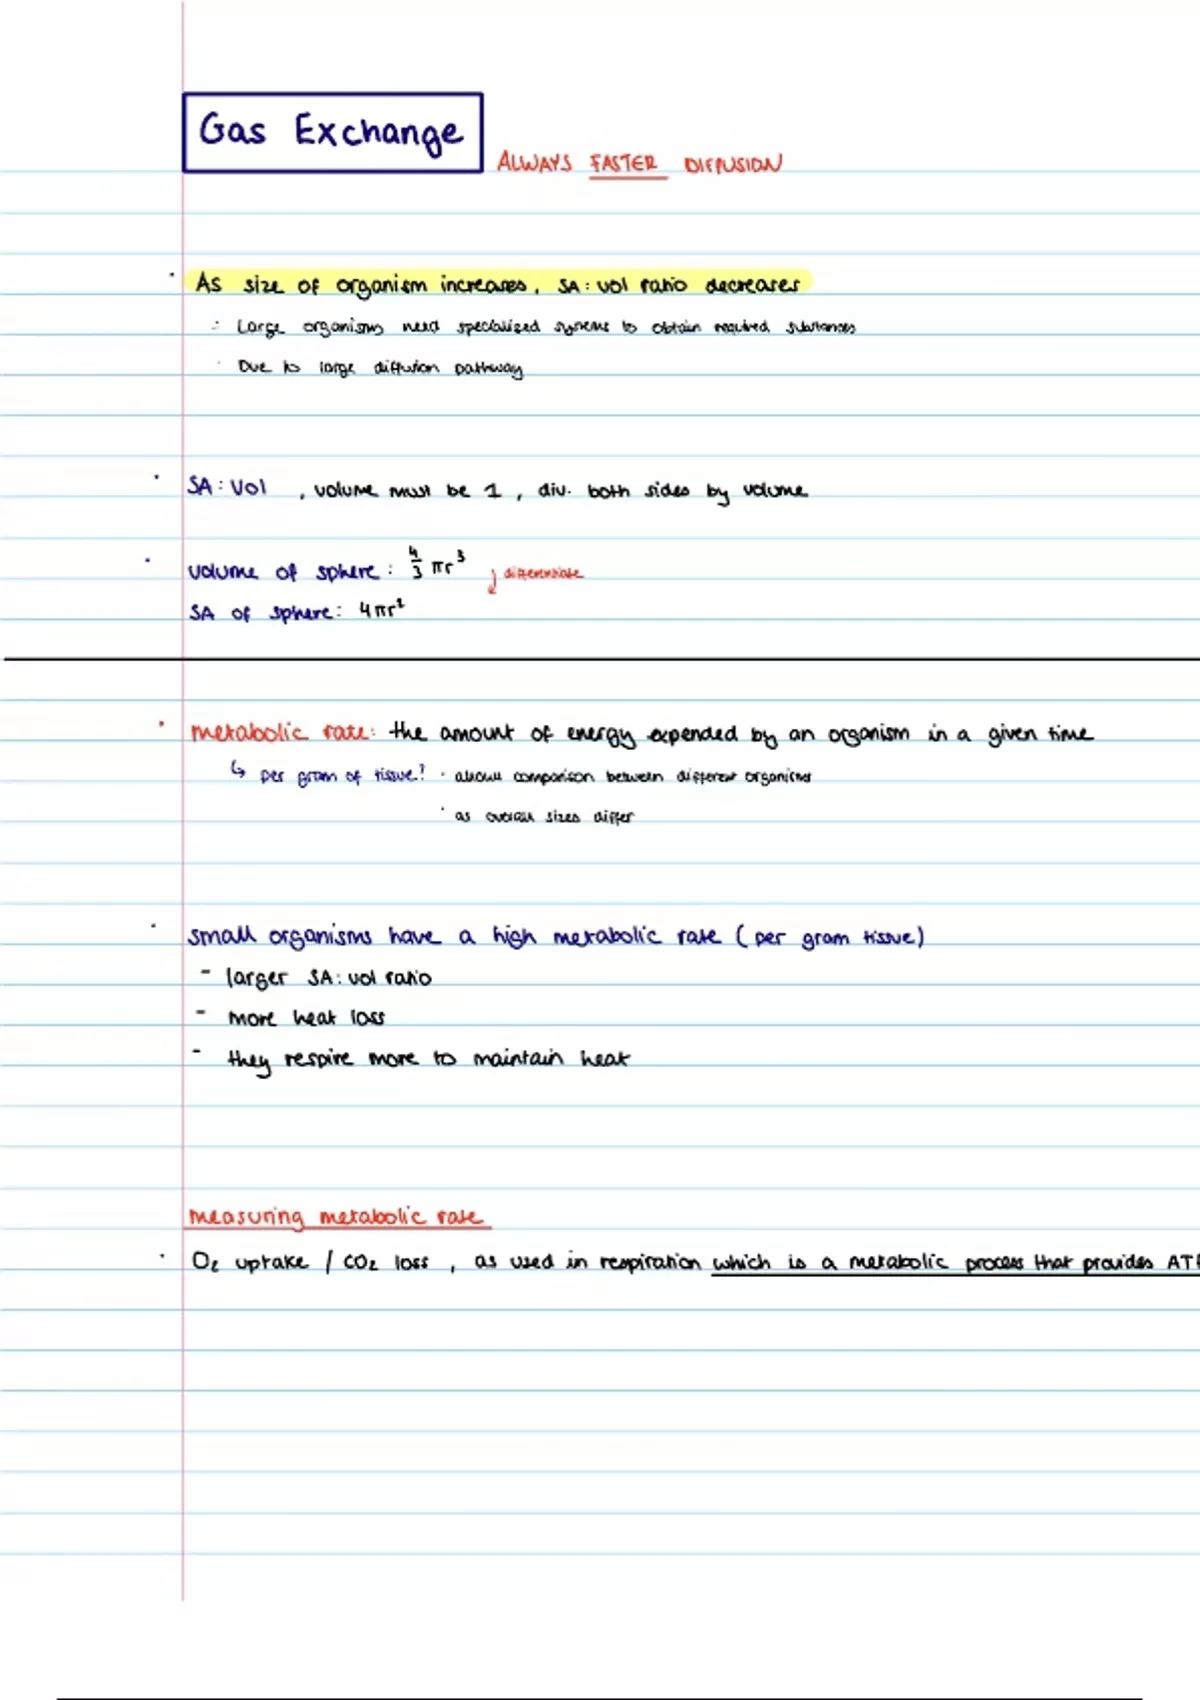 Gas Exchange
ALWAYS FASTER DIFFUSION
· As size of organism increases, SA:vol ratio decreases
∴ Large organisms need specialised systems to obtain required substances
· Due to large diffusion pathway
· SA:Vol , volume must be 1 , div. both sides by volume
· volume of sphere: 4/3 πr³ ↓ differentiate
SA of sphere: 4πr²
· metabolic rate: the amount of energy expended by an organism in a given time
↳ per gram of tissue? · allows comparison between different organisms
· as overall sizes differ
· small organisms have a high metabolic rate (per gram tissue)
- larger SA:vol ratio
- more heat loss
- they respire more to maintain heat
measuring metabolic rate
· O₂ uptake / CO₂ loss , as used in respiration which is a metabolic process that provides ATP